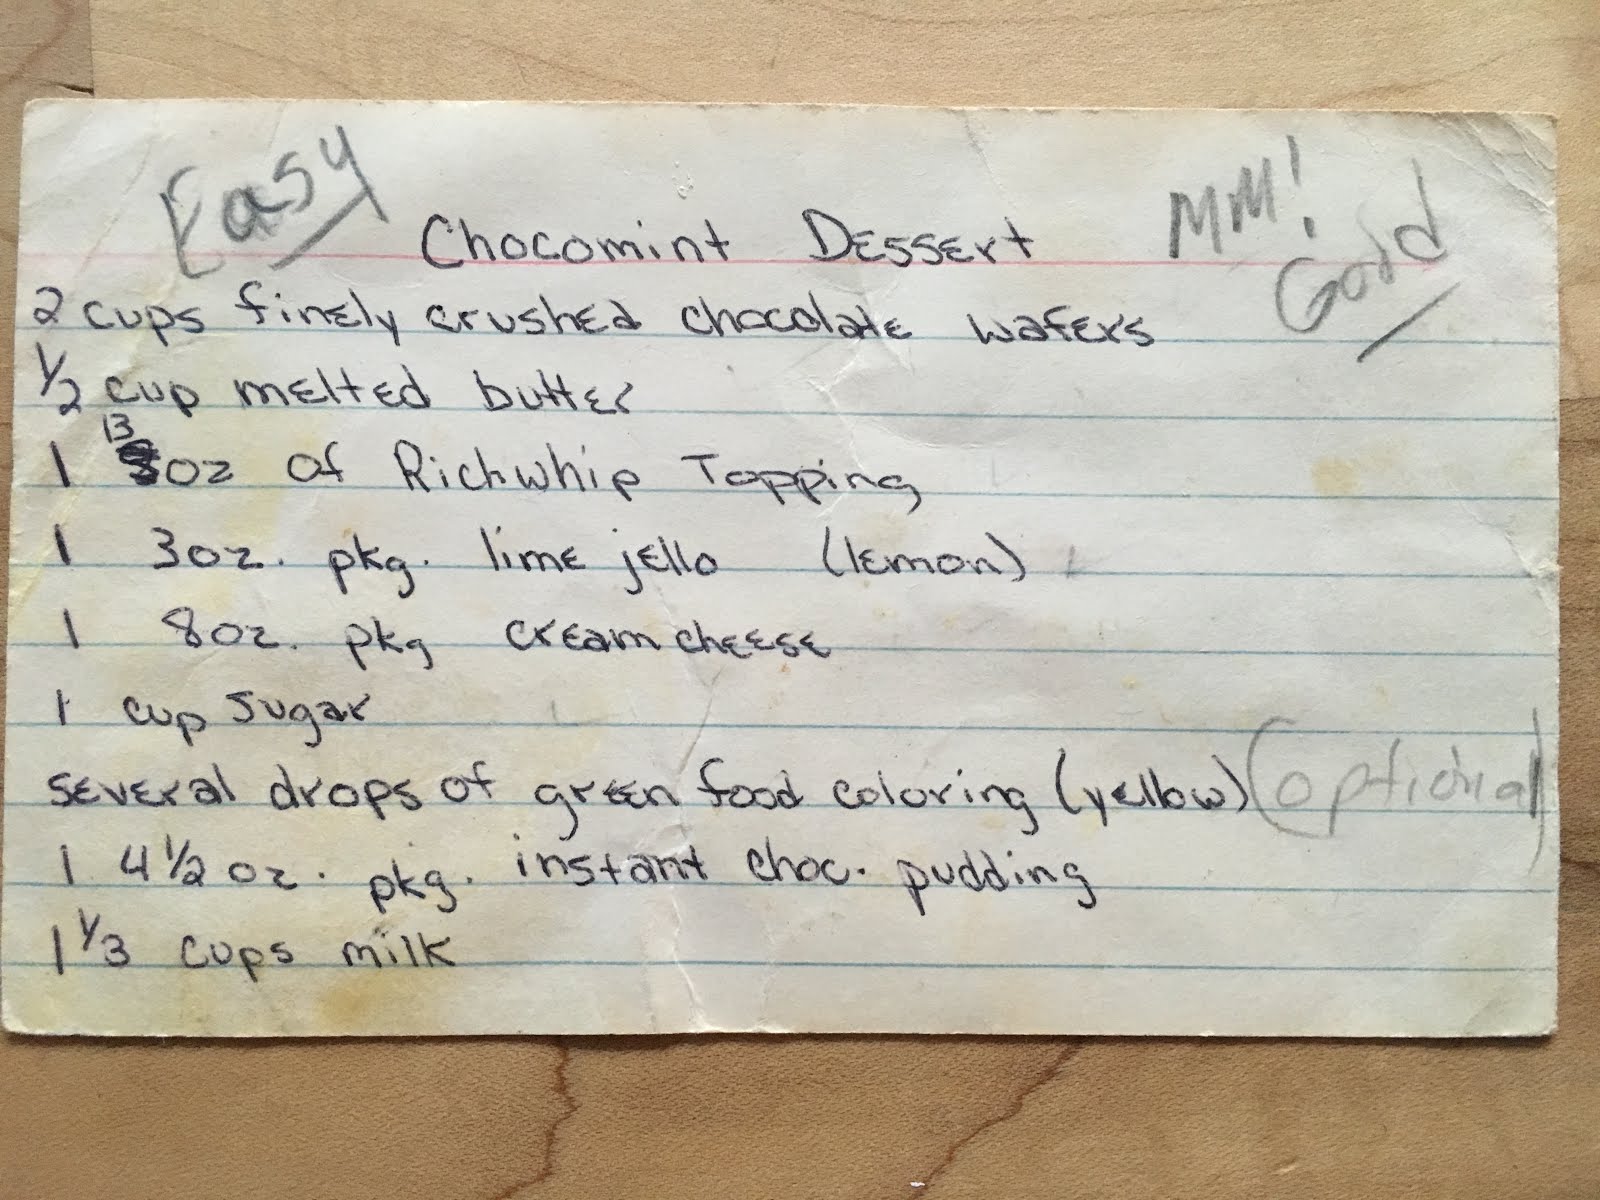 Easy
MM!
Good
Chocomint Dessert
2 cups finely crushed chocolate wafers
1/2 cup melted butter
1 13 oz of Richwhip Topping
1 3oz. pkg. lime jello (lemon)
1 8oz. pkg cream cheese
1 cup sugar
several drops of green food coloring (yellow) (optional)
1 4 1/2 oz. pkg. instant choc. pudding
1 1/3 cups milk